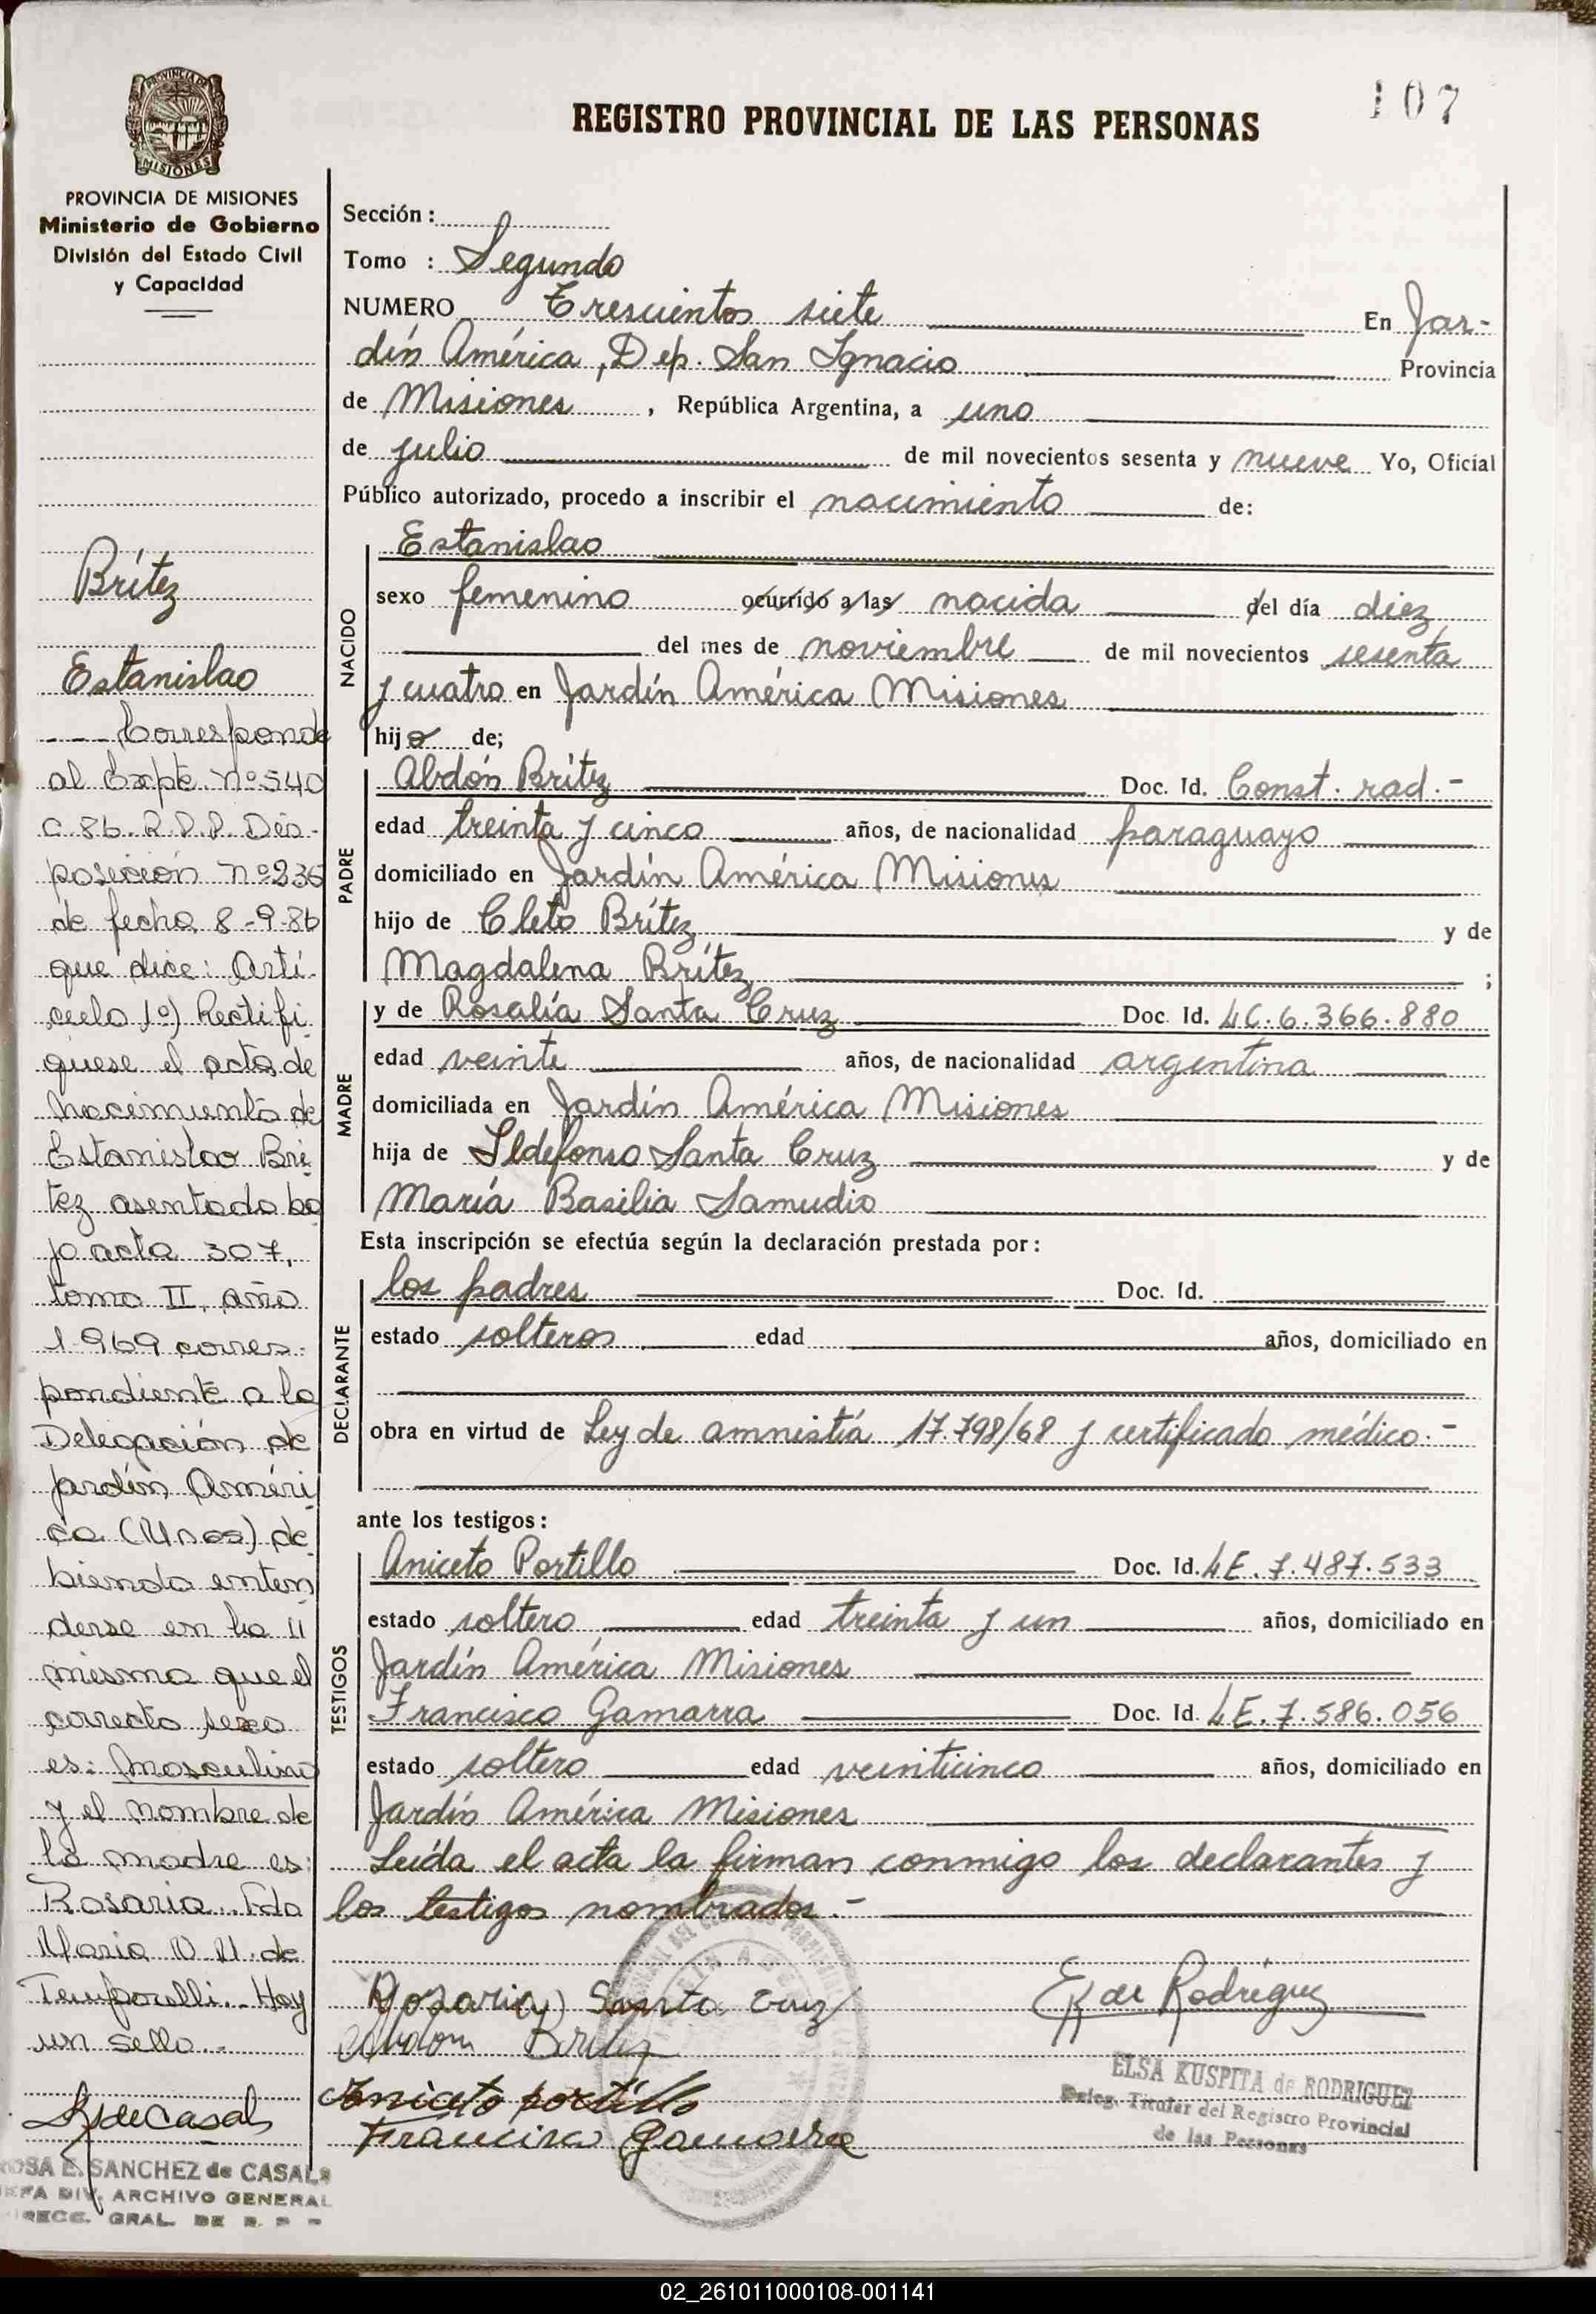 107
REGISTRO PROVINCIAL DE LAS PERSONAS
PROVINCIA DE
MISIONES
PROVINCIA DE MISIONES
Ministerio de Gobierno
División del Estado Civil
y Capacidad
Brítez
Estanislao
--- Corresponde
al Expte. nº 540
C 86. R.P.P. Dis-
posición nº 236
de fecha 8-9-86
que dice: Artí-
culo 1º) Rectifí
quese el acta de
nacimiento de
Estanislao Bri
tez asentado ba
jo acta 307,
tomo II, año
1.969 corres-
pondiente a la
Delegación de
Jardín Améri
ca (Mnes) de
biendo enten
derse en la
misma que el
correcto sexo
es: Masculino
y el nombre de
la madre es:
Rosaria. Fdo
Maria de
Hay
un sello.-
ROSA E. SANCHEZ de CASALS
JEFA DIV. ARCHIVO GENERAL
DIRECC. GRAL. DE R. P.
Sección :
Tomo : Segundo
NUMERO Trescientos siete En Jar-
dín América, Dep. San Ignacio Provincia
de Misiones , República Argentina, a uno
de julio de mil novecientos sesenta y nueve Yo, Oficial
Público autorizado, procedo a inscribir el nacimiento de:
NACIDO
Estanislao
sexo femenino ocurrido a las nacida del día diez
del mes de noviembre de mil novecientos sesenta
y cuatro en Jardín América Misiones
hijo de;
PADRE
Abdón Brítez Doc. Id. Const. rad.-
edad treinta y cinco años, de nacionalidad paraguayo
domiciliado en Jardín América Misiones
hijo de Cleto Brítez y de
Magdalena Brítez ;
MADRE
y de Rosalía Santa Cruz Doc. Id. LC.6.366.880
edad veinte años, de nacionalidad argentina
domiciliada en Jardín América Misiones
hija de Ildefonso Santa Cruz y de
María Basilia Samudio
Esta inscripción se efectúa según la declaración prestada por:
DECLARANTE
los padres Doc. Id.
estado solteros edad años, domiciliado en
obra en virtud de Ley de amnistía 17.798/68 y certificado médico.-
ante los testigos:
TESTIGOS
Aniceto Portillo Doc. Id. LE.7.487.533
estado soltero edad treinta y un años, domiciliado en
Jardín América Misiones
Francisco Gamarra Doc. Id. LE.7.586.056
estado soltero edad veinticinco años, domiciliado en
Jardín América Misiones
Leída el acta la firman conmigo los declarantes y
los testigos nombrados.-
Rosaria Santa Cruz
Abdon Britez
Aniceto Portillo
Francisco Gamarra
E K de Rodríguez
ELSA KUSPITA de RODRIGUEZ
Deleg. Titular del Registro Provincial
de las Personas
02_261011000108-001141